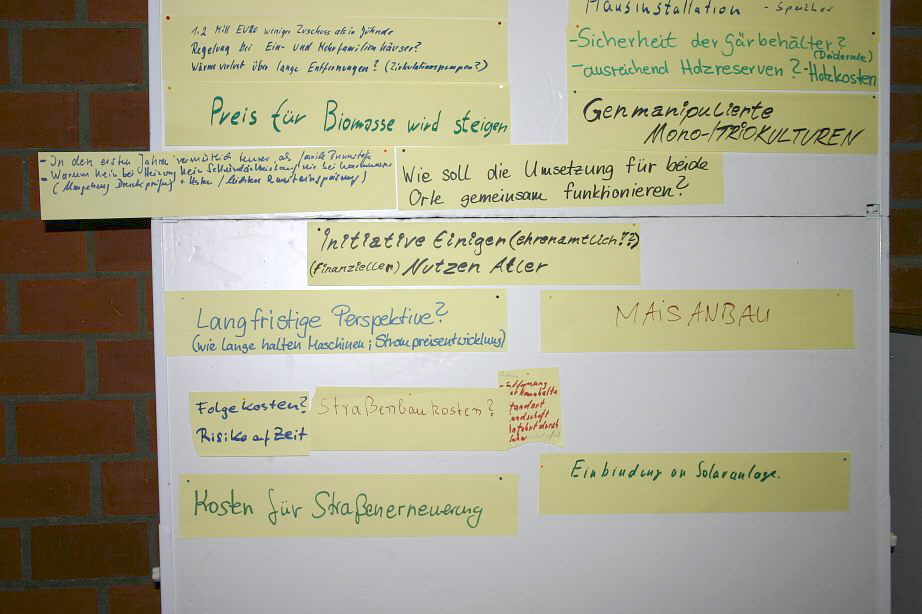 Hausinstallation - Speicher
1,2 Mill EURO weniger Zuschuss als in Jühnde
Regelung bei Ein- und Mehrfamilienhäuser?
Wärmeverlust über lange Entfernungen? (Zirkulationspumpen?)
-Sicherheit der Gärbehälter?
-ausreichend Holzreserven? -Holzkosten
Preis für Biomasse wird steigen
Genmanipulierte
Mono-/TRIOKULTUREN
- In den ersten Jahren vermutlich teurer als fossile Brennstoffe
- Warum kein bei Heizung kein bei
(Umgehung + /
Wie soll die Umsetzung für beide
Orte gemeinsam funktionieren?
Initiative Einiger (ehrenamtlich!?)
(finanzieller) Nutzen Aller
Langfristige Perspektive?
(wie lange halten Maschinen; Strompreisentwicklung)
MAISANBAU
Folgekosten?
Risiko auf Zeit
Straßenbaukosten?
- Entfernung
tandort
andschaft
Kosten für Straßenerneuerung
Einbindung an Solaranlage.